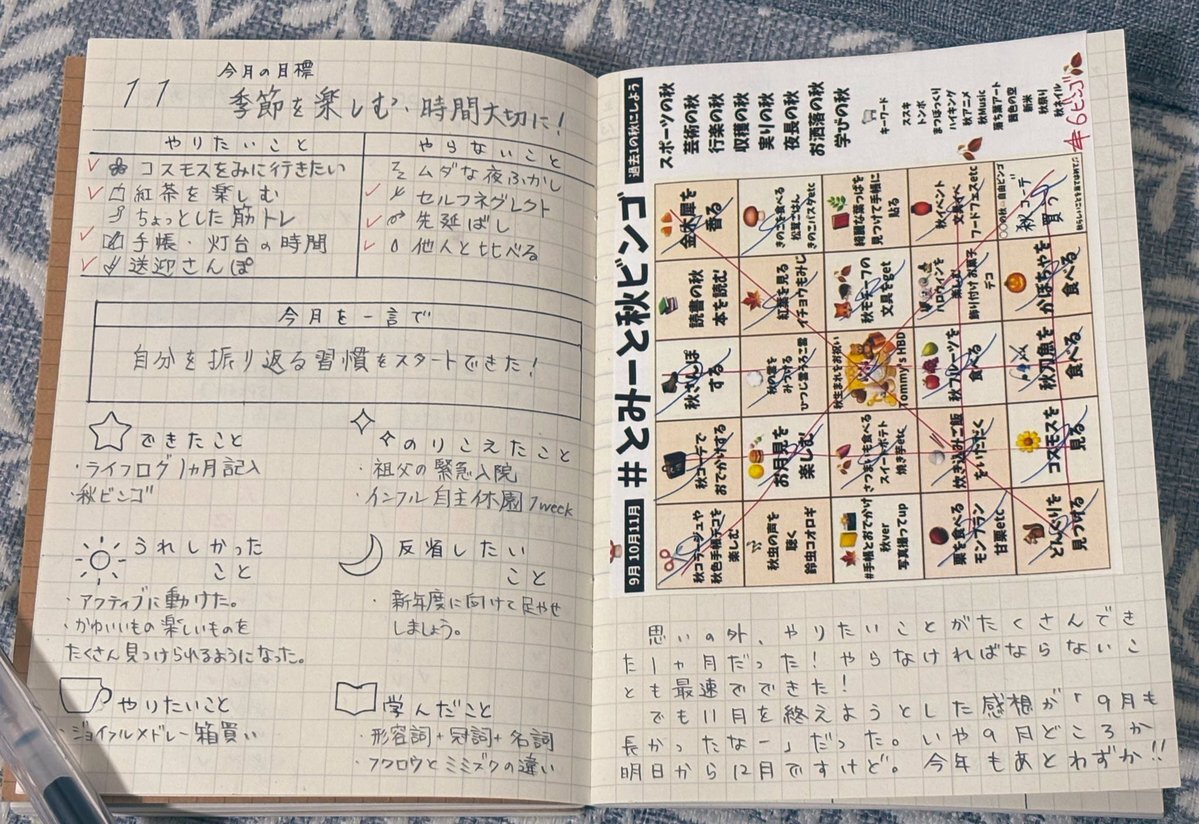 11
今月の目標
季節を楽しむ、時間大切に！
やりたいこと
コスモスをみに行きたい
紅茶を楽しむ
ちょっとした筋トレ
手帳・灯台の時間
送迎さんぽ
やらないこと
ムダな夜ふかし
セルフネグレクト
先延ばし
他人と比べる
今月を一言で
自分を振り返る習慣をスタートできた！
できたこと
・ライフログ1ヵ月記入
・秋ビンゴ
のりこえたこと
・祖父の緊急入院
・インフル自主休園1week
うれしかった
こと
・アクティブに動けた。
・かわいいもの楽しいものを
たくさん見つけられるようになった。
反省したい
こと
・新年度に向けて足やせ
しましょう。
やりたいこと
・ジョイフルメドレー箱買い
学んだこと
・形容詞+冠詞+名詞
・フクロウとミミズクの違い
9月10月11月
#とみーと秋ビンゴ
過去1の秋にしよう
スポーツの秋
芸術の秋
行楽の秋
収穫の秋
実りの秋
夜長の秋
お洒落の秋
学びの秋
キーワード
ススキ
トンボ
まつぼっくり
ハイキング
秋アニメ
秋Music
落ち葉アート
茜色の空
新米
秋祭り
秋ネイル
#6ビンゴ
秋コラージュや
秋色手帳デコを
楽しむ
秋コーデで
おでかけする
秋さんぽ
する
読書の秋
本を読む
金木犀を
香る
秋虫の声を
聴く
鈴虫コオロギ
お月見を
楽しむ
秋の雲を
みつける
ひつじ雲うろこ雲
紅葉を見る
イチョウもみじ
きのこを食べる
松茸ごはん
きのこパスタetc
#手帳とおでかけ
秋ver
写真撮ってup
さつまいも食べる
スイートポテト
焼き芋etc
秋生まれをお祝い
Tommy's HBD
秋モチーフの
文具をget
綺麗な葉っぱを
見つけて手帳に
貼る
栗を食べる
モンブラン
甘栗etc
炊き込みご飯
をいただく
秋フルーツを
食べる
ハロウィンを
楽しむ
飾り付けお菓子
デコ
秋イベント
フードフェスetc
どんぐりを
見つける
コスモスを
見る
秋刀魚を
食べる
かぼちゃを
食べる
〇〇の秋…自由ビンゴ
秋コーデ
買う
秋らしいことを当てはめて♫
思いの外、やりたいことがたくさんでき
た1ヶ月だった！やらなければならないこ
とも最速でできた！
でも11月を終えようとした感想が「9月も
長かったなー」だった。いや9月どころか
明日から12月ですけど。今年もあとわずか!!